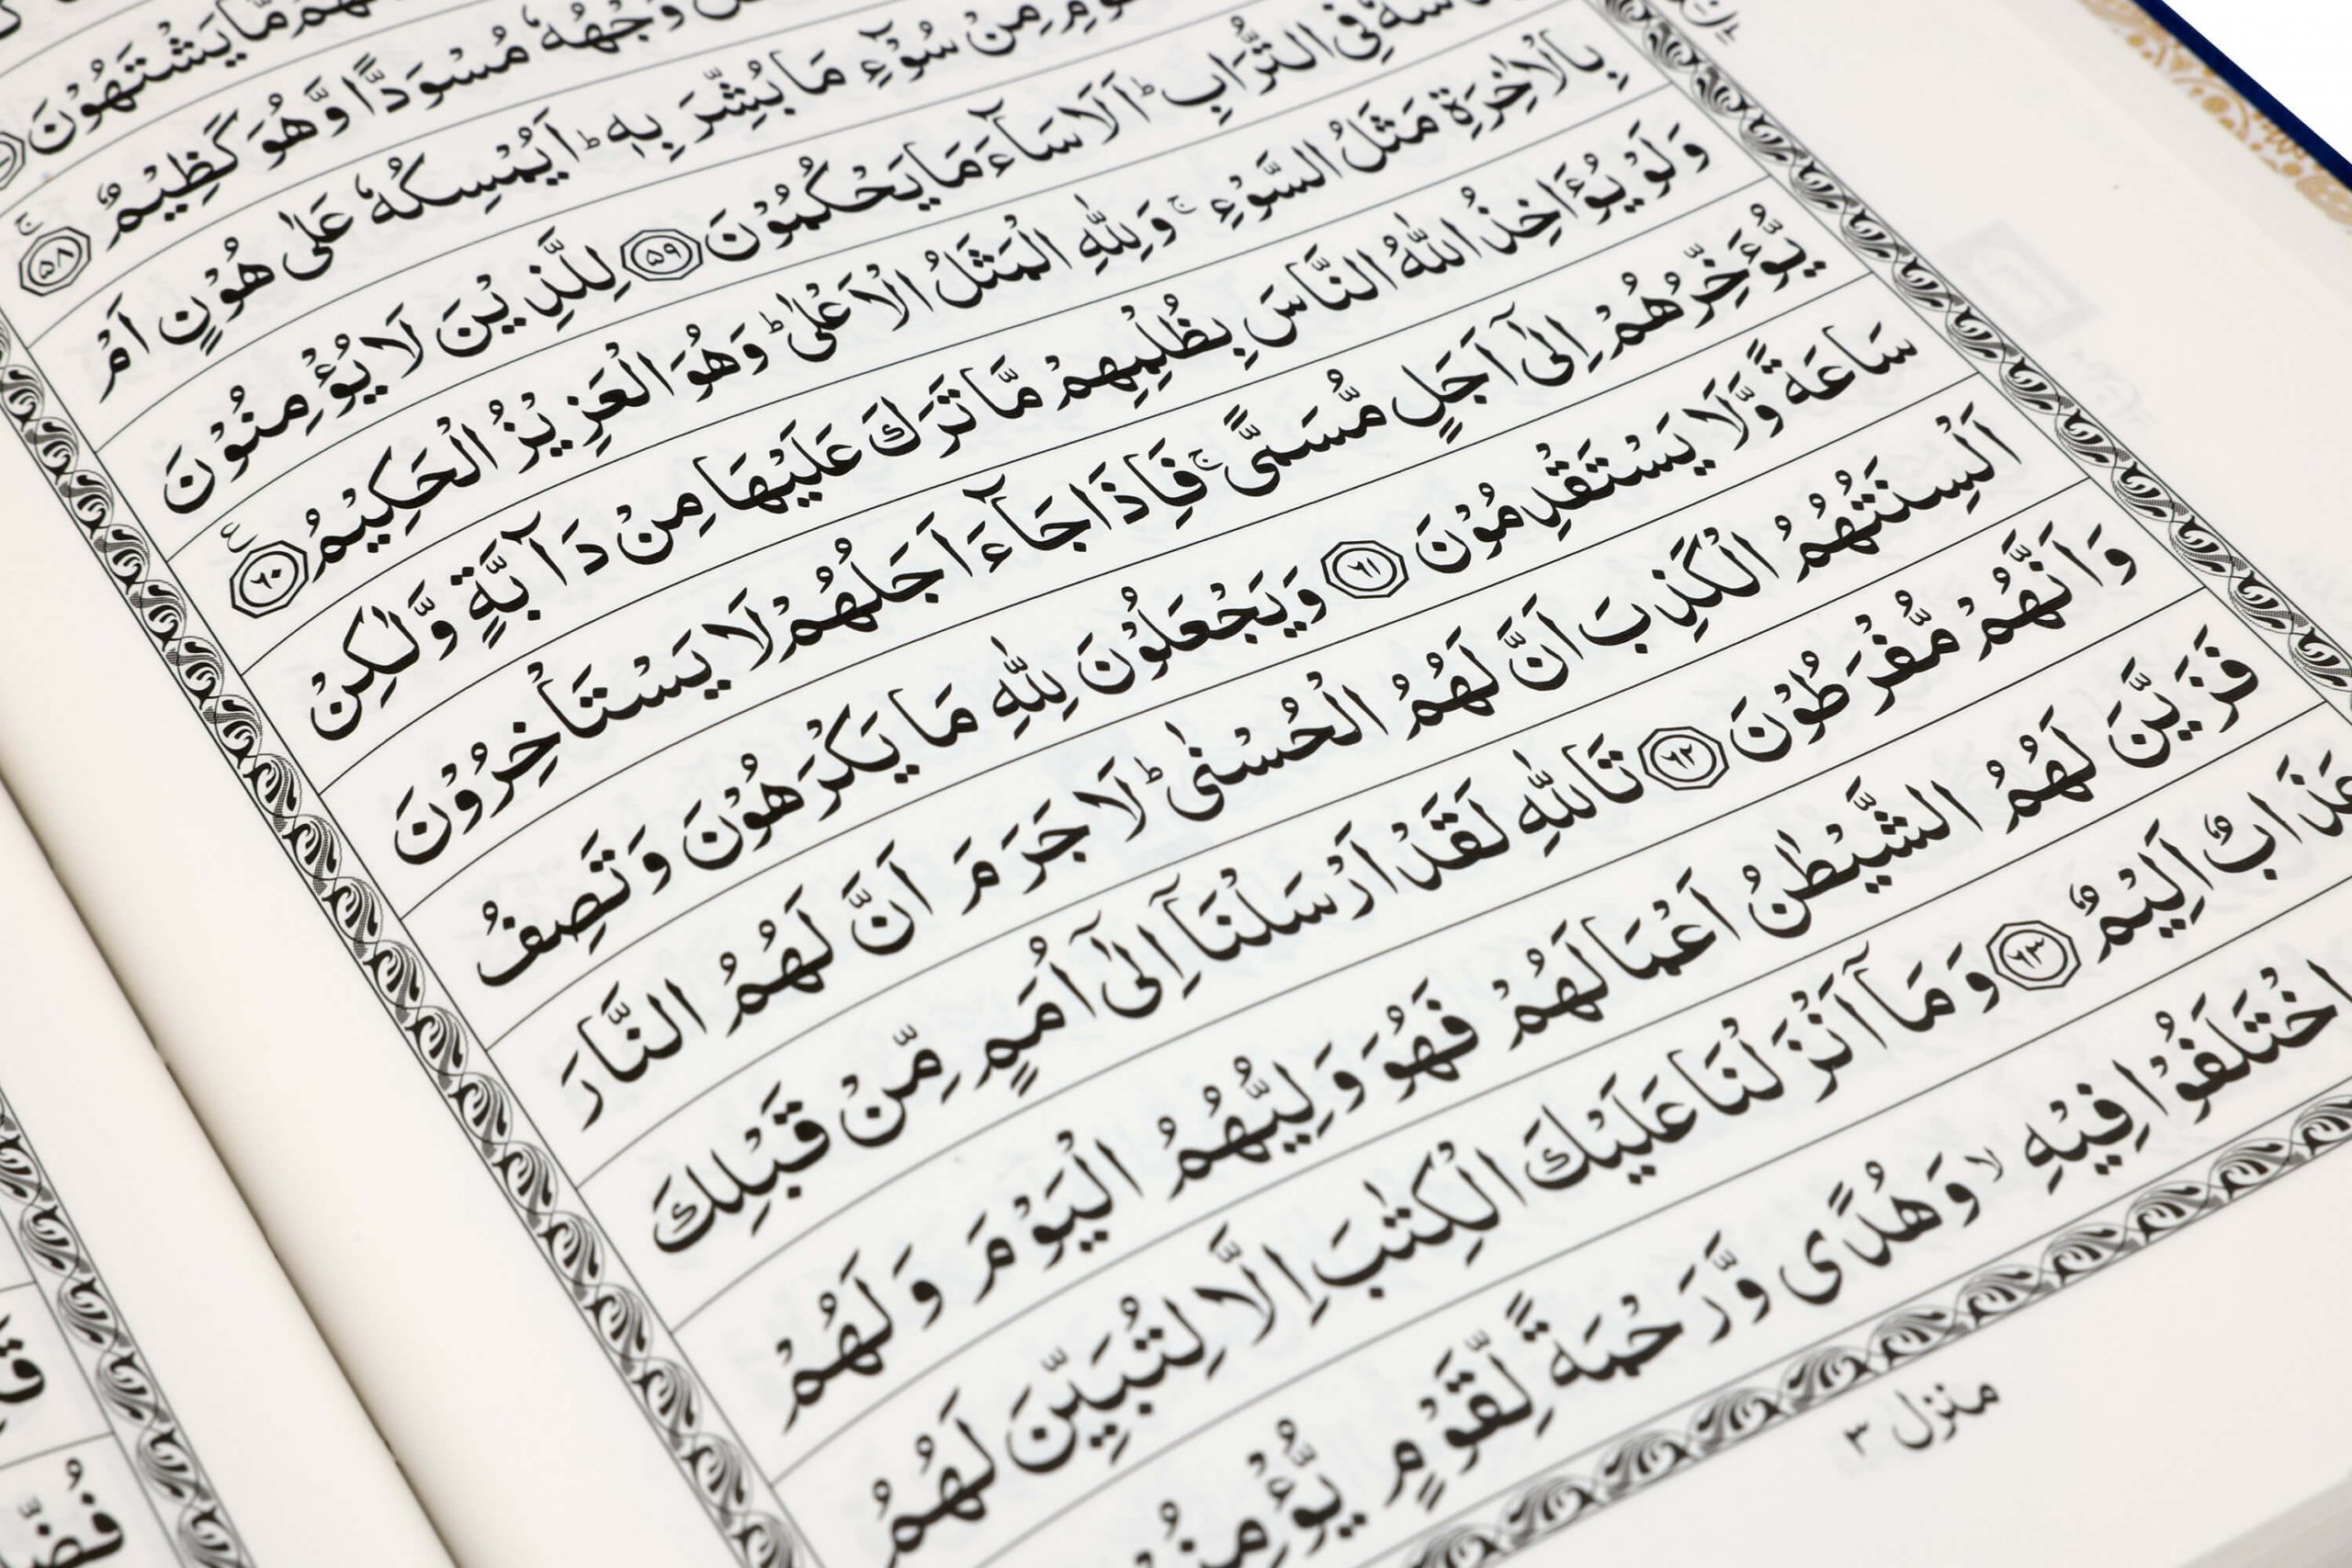 مَّا يَشْتَهُوْنَ
وَجْهُهٗ مُسْوَدًّا وَّهُوَ كَظِيْمٌ ۚ ۝۵۸
مِنْ سُوْٓءِ مَا بُشِّرَ بِهٖ ؕ اَيُمْسِكُهٗ عَلٰى هُوْنٍ اَمْ
فِى التُّرَابِ ؕ اَلَا سَآءَ مَا يَحْكُمُوْنَ ۝۵۹ لِلَّذِيْنَ لَا يُؤْمِنُوْنَ
بِالْاٰخِرَةِ مَثَلُ السَّوْءِ ۚ وَلِلّٰهِ الْمَثَلُ الْاَعْلٰى ؕ وَهُوَ الْعَزِيْزُ الْحَكِيْمُ ۝۶۰
وَلَوْ يُؤَاخِذُ اللّٰهُ النَّاسَ بِظُلْمِهِمْ مَّا تَرَكَ عَلَيْهَا مِنْ دَآبَّةٍ وَّلٰكِنْ
يُّؤَخِّرُهُمْ اِلٰٓى اَجَلٍ مُّسَمًّى ۚ فَاِذَا جَآءَ اَجَلُهُمْ لَا يَسْتَاْخِرُوْنَ
سَاعَةً وَّلَا يَسْتَقْدِمُوْنَ ۝۶۱ وَيَجْعَلُوْنَ لِلّٰهِ مَا يَكْرَهُوْنَ وَتَصِفُ
اَلْسِنَتُهُمُ الْكَذِبَ اَنَّ لَهُمُ الْحُسْنٰى ؕ لَا جَرَمَ اَنَّ لَهُمُ النَّارَ
وَاَنَّهُمْ مُّفْرَطُوْنَ ۝۶۲ تَاللّٰهِ لَقَدْ اَرْسَلْنَآ اِلٰٓى اُمَمٍ مِّنْ قَبْلِكَ
فَزَيَّنَ لَهُمُ الشَّيْطٰنُ اَعْمَالَهُمْ فَهُوَ وَلِيُّهُمُ الْيَوْمَ وَلَهُمْ
عَذَابٌ اَلِيْمٌ ۝۶۳ وَمَآ اَنْزَلْنَا عَلَيْكَ الْكِتٰبَ اِلَّا لِتُبَيِّنَ لَهُمُ
اخْتَلَفُوْا فِيْهِ ۙ وَهُدًى وَّرَحْمَةً لِّقَوْمٍ يُّؤْمِنُ
منزل ۳